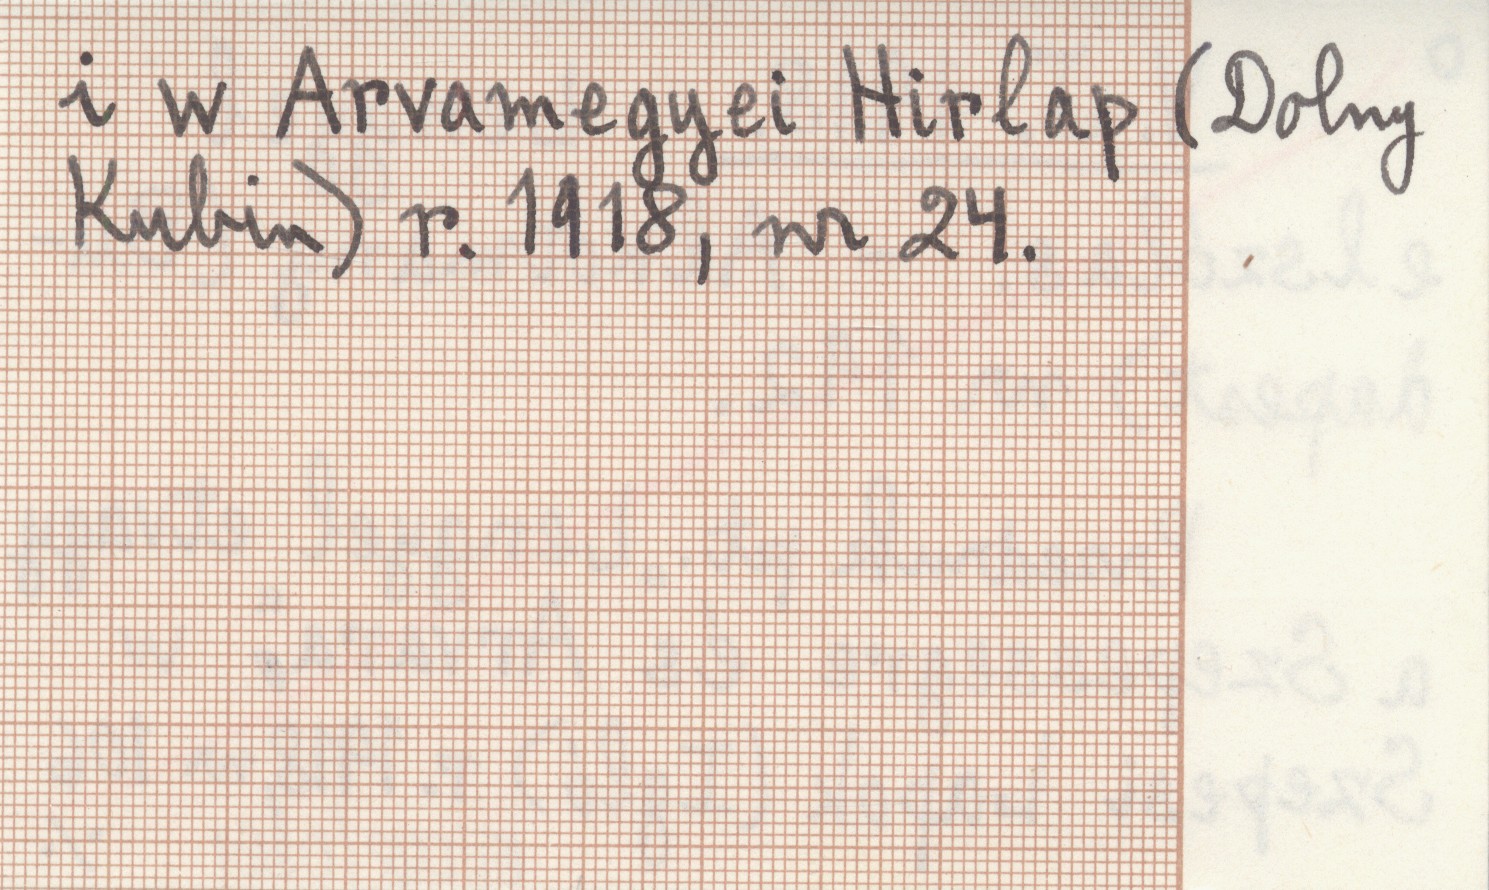 i w Arvamegyei Hirlap (Dolny
Kubin) r. 1918, nr 24.